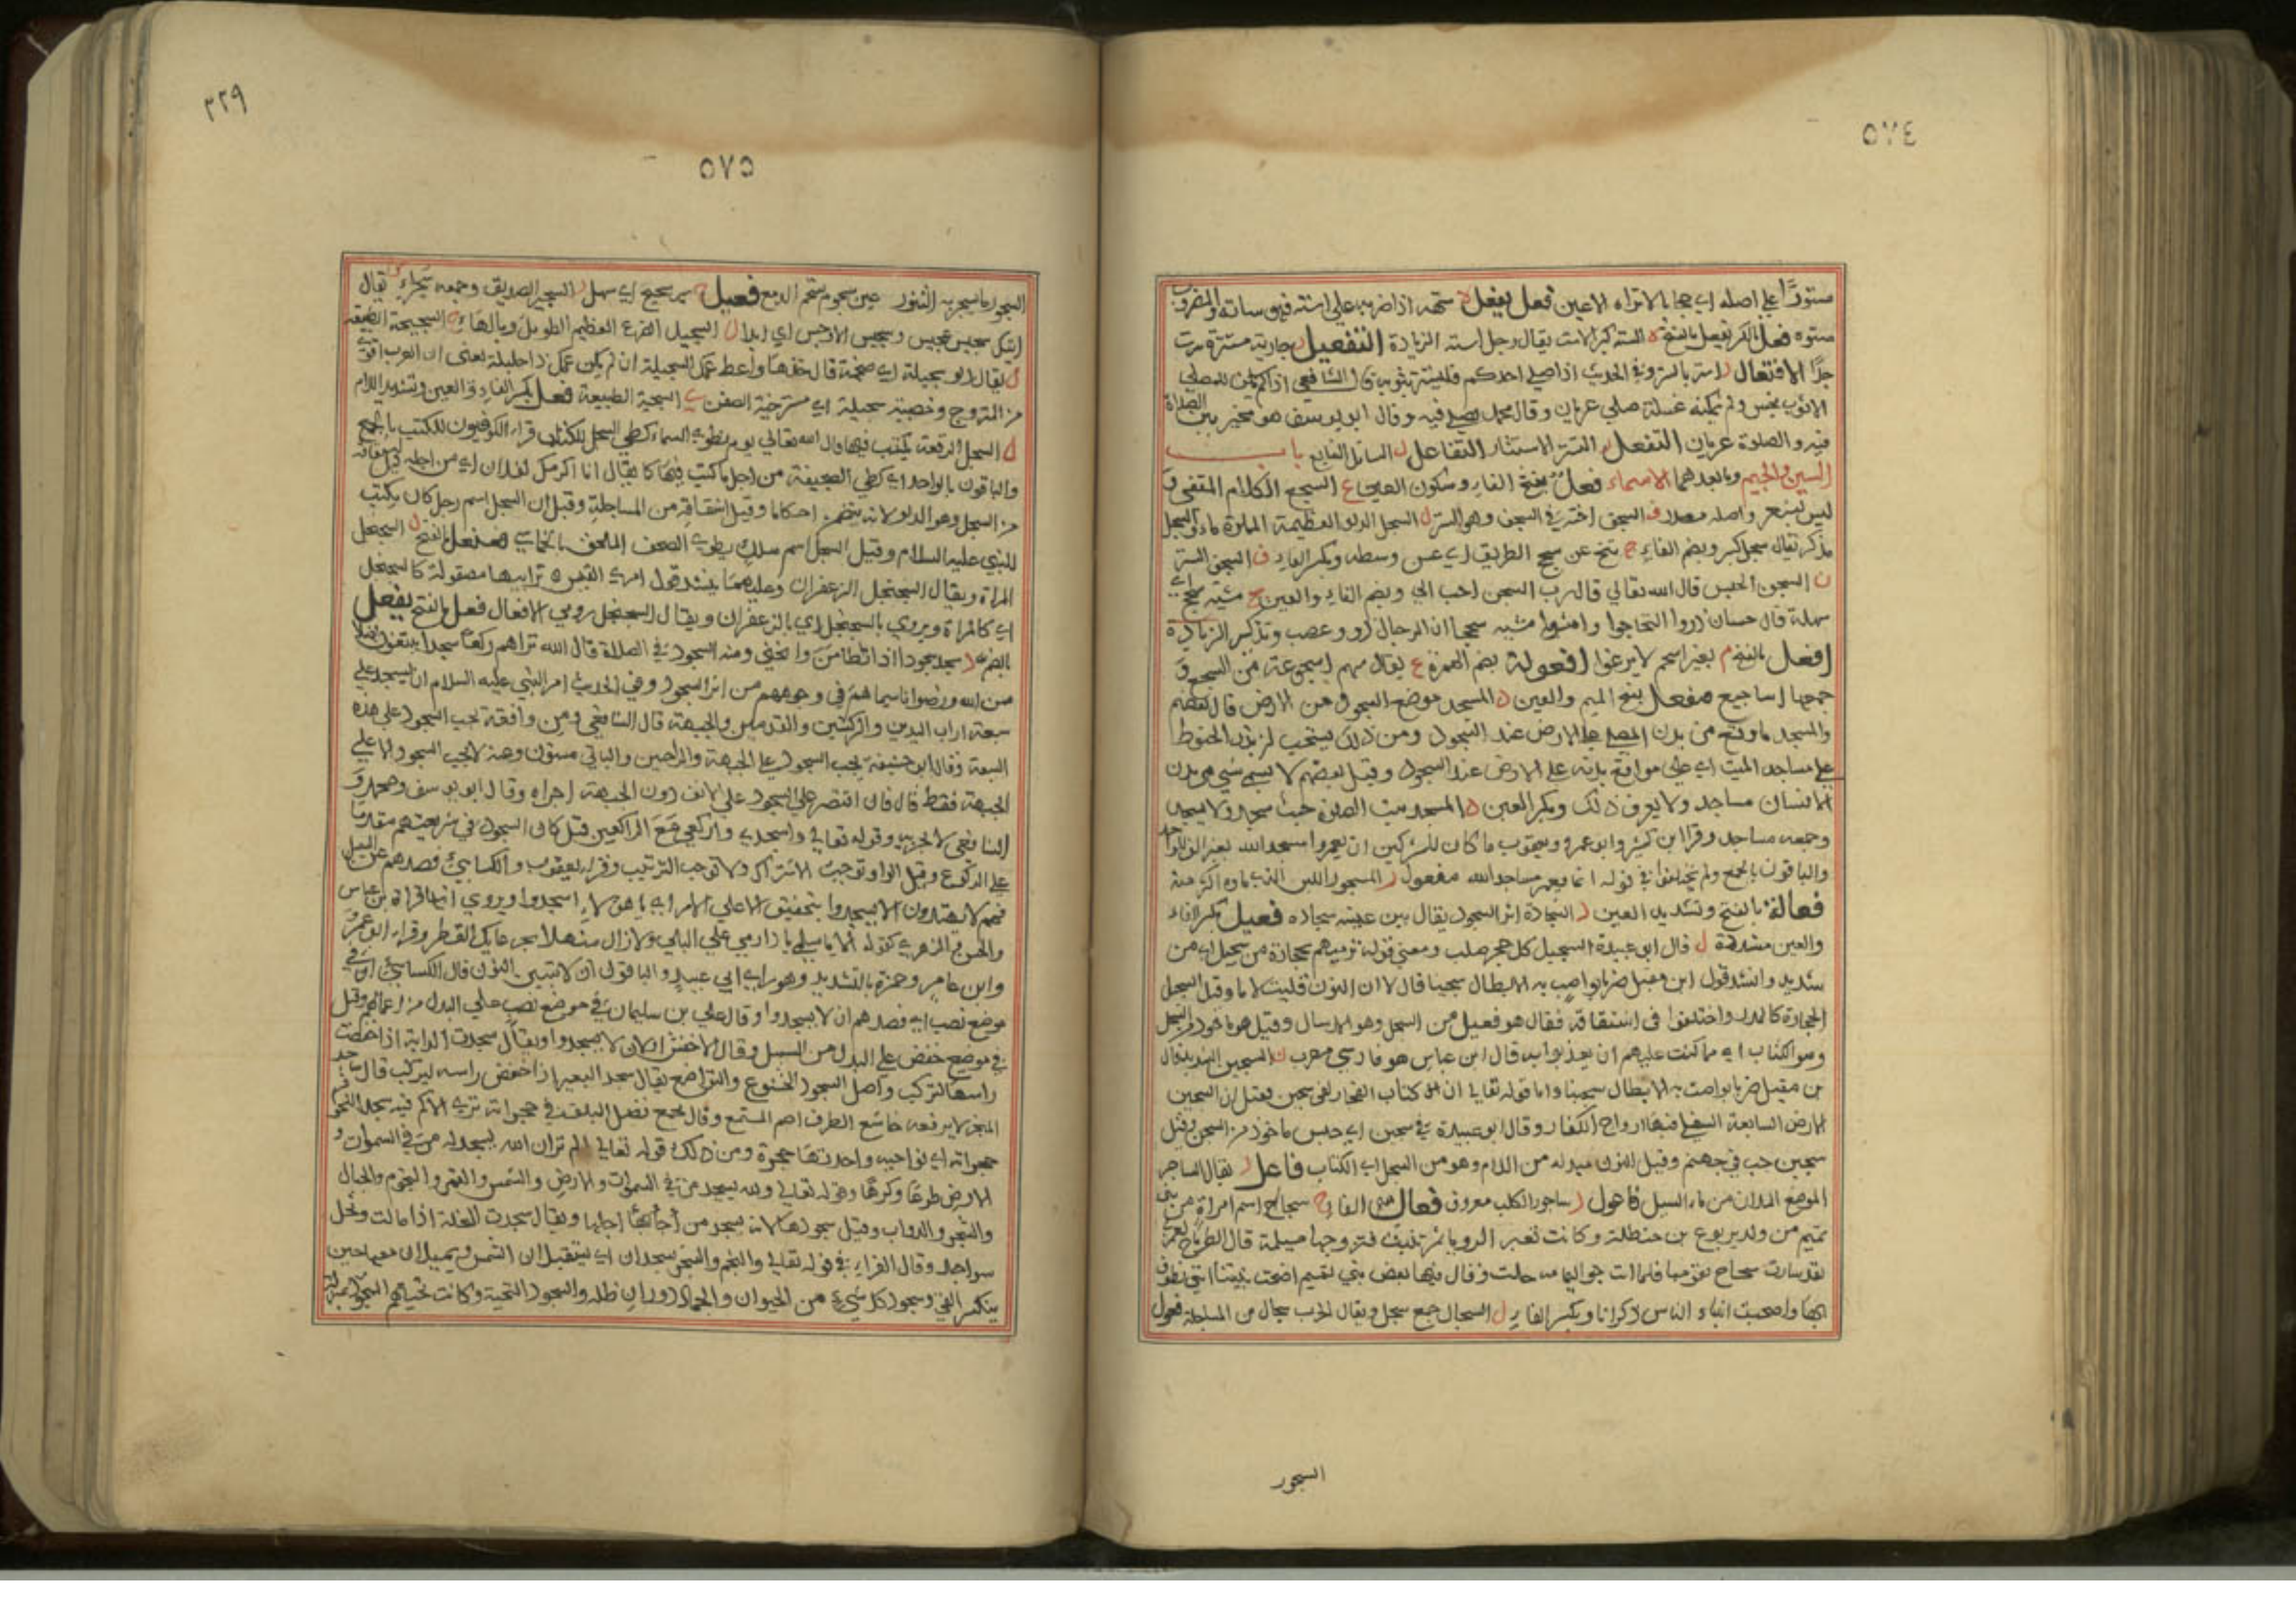 ٥٧٤
مستورًا على اصله اي حجابا لا تراه الاعين فعل يفعل ه ستهه اذا ضربه على استه فهو ساته والمضروب
ستوه فعل بالكسر يفعل بالفتح ه السته كبر الاست يقال رجل استه الزيادة التفعيل ر جارية مسترة سرت
جدًا الافتعال ر استر بالسترة وفي الحديث اذا صلى احدكم فليستتر بثوبه قال الشافعي اذا لم يكن للمصلي
الا ثوب نجس ولم يمكنه غسله صلى عريان وقال محمد يصلي فيه وقال ابو يوسف هو مخير بين الصلاة
فيه والصلاة عريان التفعل ر التستر الاستتار التفاعل ل الساتل التتابع باب
السين والجيم وما بعدهما الاسماء فعل بفتح الفاء وسكون العين ع السجع الكلام المقفى
ليس بشعر واصله مصدر ف السجف احد سترى السجف وهو الستر ل السجل الدلو العظيمة الملاءة ماء والسجل
مذكر يقال سجل كبير وبضم الفاء ح تنح عن سجح الطريق اي عن وسطه وبكسر الفاء ف السجف الستر
ن السجن الحبس قال الله تعالى قال رب السجن احب الي وبضم الفاء والعين ح مشية سجح اي
سهلة قال حسان ذروا التخاجوا وامشوا مشية سجحا ان الرجال ذوو عصب وتذكير الزيادة
افعل بالفتح م بعير اسجم لا يرغو افعولة بضم الهمزة ع يقال بينهم اسجوعة من السجع و
جمعها اساجيع مفعل بفتح الميم والعين د المسجد موضع السجود من الارض قال بعضهم
والمسجد ما وقع من بدن المصلي على الارض عند السجود ومن ذلك يستحب ان يذر الحنوط
على مساجد الميت اي على مواقع بدنه على الارض عند السجود وقيل بعضهم لا يسمى شي من بدن
الانسان مساجد ولا يعرف ذلك وبكسر العين د المسجد بيت الصلاة حيث سجد ولا يسجد
وجمعه مساجد وقرا ابن كثير وابو عمرو ويعقوب ما كان للمشركين ان يعمروا مسجد الله بغير الف للواحد
والباقون بالجمع ولم يختلفوا في قوله انما يعمر مساجد الله مفعول ر المسجور اللبن الذي ماؤه اكثر منه
فعالة بالفتح وتشديد العين د السجادة اثر السجود يقال بين عينيه سجادة فعيل بكسر الفاء
والعين مشددة ل قال ابو عبيدة السجيل كل حجر صلب ومعنى قوله ترميهم بحجارة من سجيل اي من
شديد وانشد قول ابن مقبل ضربا تواصت به الابطال سجينا قال لا ان النون قلبت لاما وقيل السجيل
الحجارة كالمدر واختلفوا في اشتقاقه فقال هو فعيل من السجل وهو الارسال وقيل هو ماخوذ من السجل
وهو الكتاب اي مما كتب عليهم ان يعذبوا به قال ابن عباس هو فارسي معرب ن السجين الشديد قال
بن مقبل ضربا تواصت به الابطال سجينا واما قوله تعالى ان كتاب الفجار لفي سجين فقيل ان السجين
الارض السابعة السفلى فيها ارواح الكفار وقال ابو عبيدة في سجين اي حبس ماخوذ من السجن وقيل
سجين جب في جهنم وقيل النون مبدلة من اللام وهو من السجل اي الكتاب فاعل ر يقال الساجر
الموضع الملآن من ماء السيل فاعول ر ساجور الكلب معروف فعال بفتح الفاء ح سجاح اسم امراة من بني
تميم من ولد يربوع بن حنظلة وكانت تغبر الرويا ثم تنبت فتزوجها مسيلمة قال الطرماح لعمري
لقد سارت سجاح بقومها فلما اتت حلت وقال فيها بعض بني تميم اضحت نبيتنا انثى نطوف
بها واصحبت انبياء الناس ذكرانا وبكسر الفاء ل السجال جمع سجل ويقال الحرب سجال من المساجلة فعول
السجور
٣٢٩
٥٧٥
السجور ما يسجر به التنور عين سجوم سجم الدمع فعيل ح سير سجيح اي سهل ر السجير الصديق وجمعه سجراء يقال
اتيك سجيس عجيس وسجيس الاوجس اي ابدا ل السجيل الضرع العظيم الطويل وبالهاء ح السجيحة الطبيعة
ل يقال دلو سجيلة اي ضخمة قال خذها واعط عمك السجيلة ان لم يكن عمك ذا حليلة يعني ان العرب اقوى
من المتزوج وخصية سجيلة اي مسترخية الصفن ي السجية الطبيعة فعل بكسر الفاء والعين وتشديد اللام
ل السجل الرقعة يكتب فيها قال الله تعالى يوم نطوي السماء كطي السجل للكتاب قراء الكوفيون للكتب بالجمع
والباقون بالواحد اي كطي الصحيفة من اجل ما كتب فيها كما يقال انا اكرمك لفلان اي من اجله قيل اشتقاقه
من السجل وهو الدلو لانه يتضمن احكاما وقيل اشتقاقه من المساجلة وقيل ان السجل اسم رجل كان يكتب
للنبي عليه السلام وقيل السجل اسم ملك يطوي الصحف الملحق بالخماسي فعنعل بالفتح ل السجنجل
المراة ويقال السجنجل الزعفران وعليهما ينشد قول امري القيس ترايبها مصقولة كالسجنجل
اي كالمراة ويروي بالسجنجل اي بالزعفران ويقال السجنجل رومي الافعال فعل بالفتح يفعل
بالضم د سجد سجودا اذا تطامن وانحنى ومنه السجود في الصلاة قال الله تراهم ركعا سجدا يبتغون فضلا
من الله ورضوانا سيماهم في وجوههم من اثر السجود وفي الحديث امر النبي عليه السلام ان يسجد على
سبعة اراب اليدين والركبتين والقدمين والجبهة قال الشافعي ومن وافقه يجب السجود على هذه
السبعة وقال ابو حنيفة يجب السجود على الجبهة والراحتين والباقي مسنون وعنه لا يجب السجود الا على
الجبهة فقط قال فان اقتصر على السجود على الانف دون الجبهة اجزاه وقال ابو يوسف ومحمد و
الشافعي لا يجزيه وقوله تعالى واسجدي واركعي مع الراكعين قيل كان السجود في شريعتهم مقدما
على الركوع وقيل الواو توجب الاشتراك ولا توجب الترتيب وقراء يعقوب والكسائي فصدهم عن السبيل
فهم لا يهتدون الا يسجدوا بتخفيف الا على الامر اي يا هؤلاء اسجدوا ويروي انها قراة بن عباس
والحسن والزهري كقوله الا يا اسلمي يا دار مي على البلى ولا زال منهلا بجرعايك القطر وقراء ابو عمرو
وابن عامر وحمزة بالتشديد وهو راي ابي عبيد والباقون ان لا بتبيين النون قال الكسائي ان في
موضع نصب اي فصدهم ان لا يسجدوا وقال علي بن سليمان في موضع نصب على البدل من اعمالهم وقيل
في موضع خفض على البدل من السبيل وقال الاخفش اي لان لا يسجدوا ويقال سجدت الدابة اذا خفضت
راسها لتركب واصل السجود الخضوع والتواضع يقال سجد البعير اذا خفض راسه ليركب قال ساجد
المنخر لا يرفعه خاشع الطرف اصم المستمع وقال بجمع تضل البلق في حجراته ترى الاكم فيه سجدا للحوافر
حجراته اي نواحيه واحدتها حجرة ومن ذلك قوله تعالى الم تر ان الله يسجد له من في السموات و
الارض طوعا وكرها وقوله تعالى ولله يسجد من في السموات والارض والشمس والقمر والنجوم والجبال
والشجر والدواب وقيل سجودها لانه يسجد من اجلها ويقال سجدت النخلة اذا مالت ونخل
سواجد وقال الفراء في قوله تعالى والنجم والشجر يسجدان اي يستقبلان الشمس ويميلان معها حين
ينكسر الفيء وسجود كل شيء من الحيوان والجماد دوران ظله والسجود التحية وكانت تحياتهم السجود بمنزلة